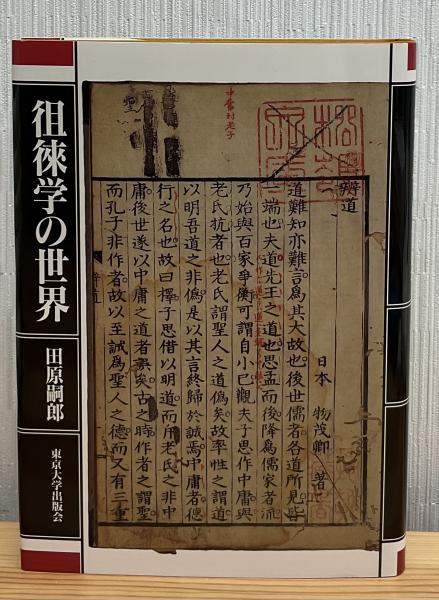 徂徠学の世界
田原嗣郎
東京大学出版会
辨道
日本 物茂卿 著
道難知亦難言爲其大故也後世儒者各道所見皆
一端也夫道先王之道也思孟而後降爲儒家者流
乃始與百家爭衡可謂自小已觀夫子思作中庸與
老氏抗者也老氏謂聖人之道僞矣故率性之謂道
以明吾道之非僞是以其言終歸於誠焉中庸者德
行之名也故曰擇子思借以明道而斥老氏之非中
庸後世遂以中庸之道者誤矣古之時作者之謂聖
而孔子非作者故以至誠爲聖人之德而又有三重
中庸対老子